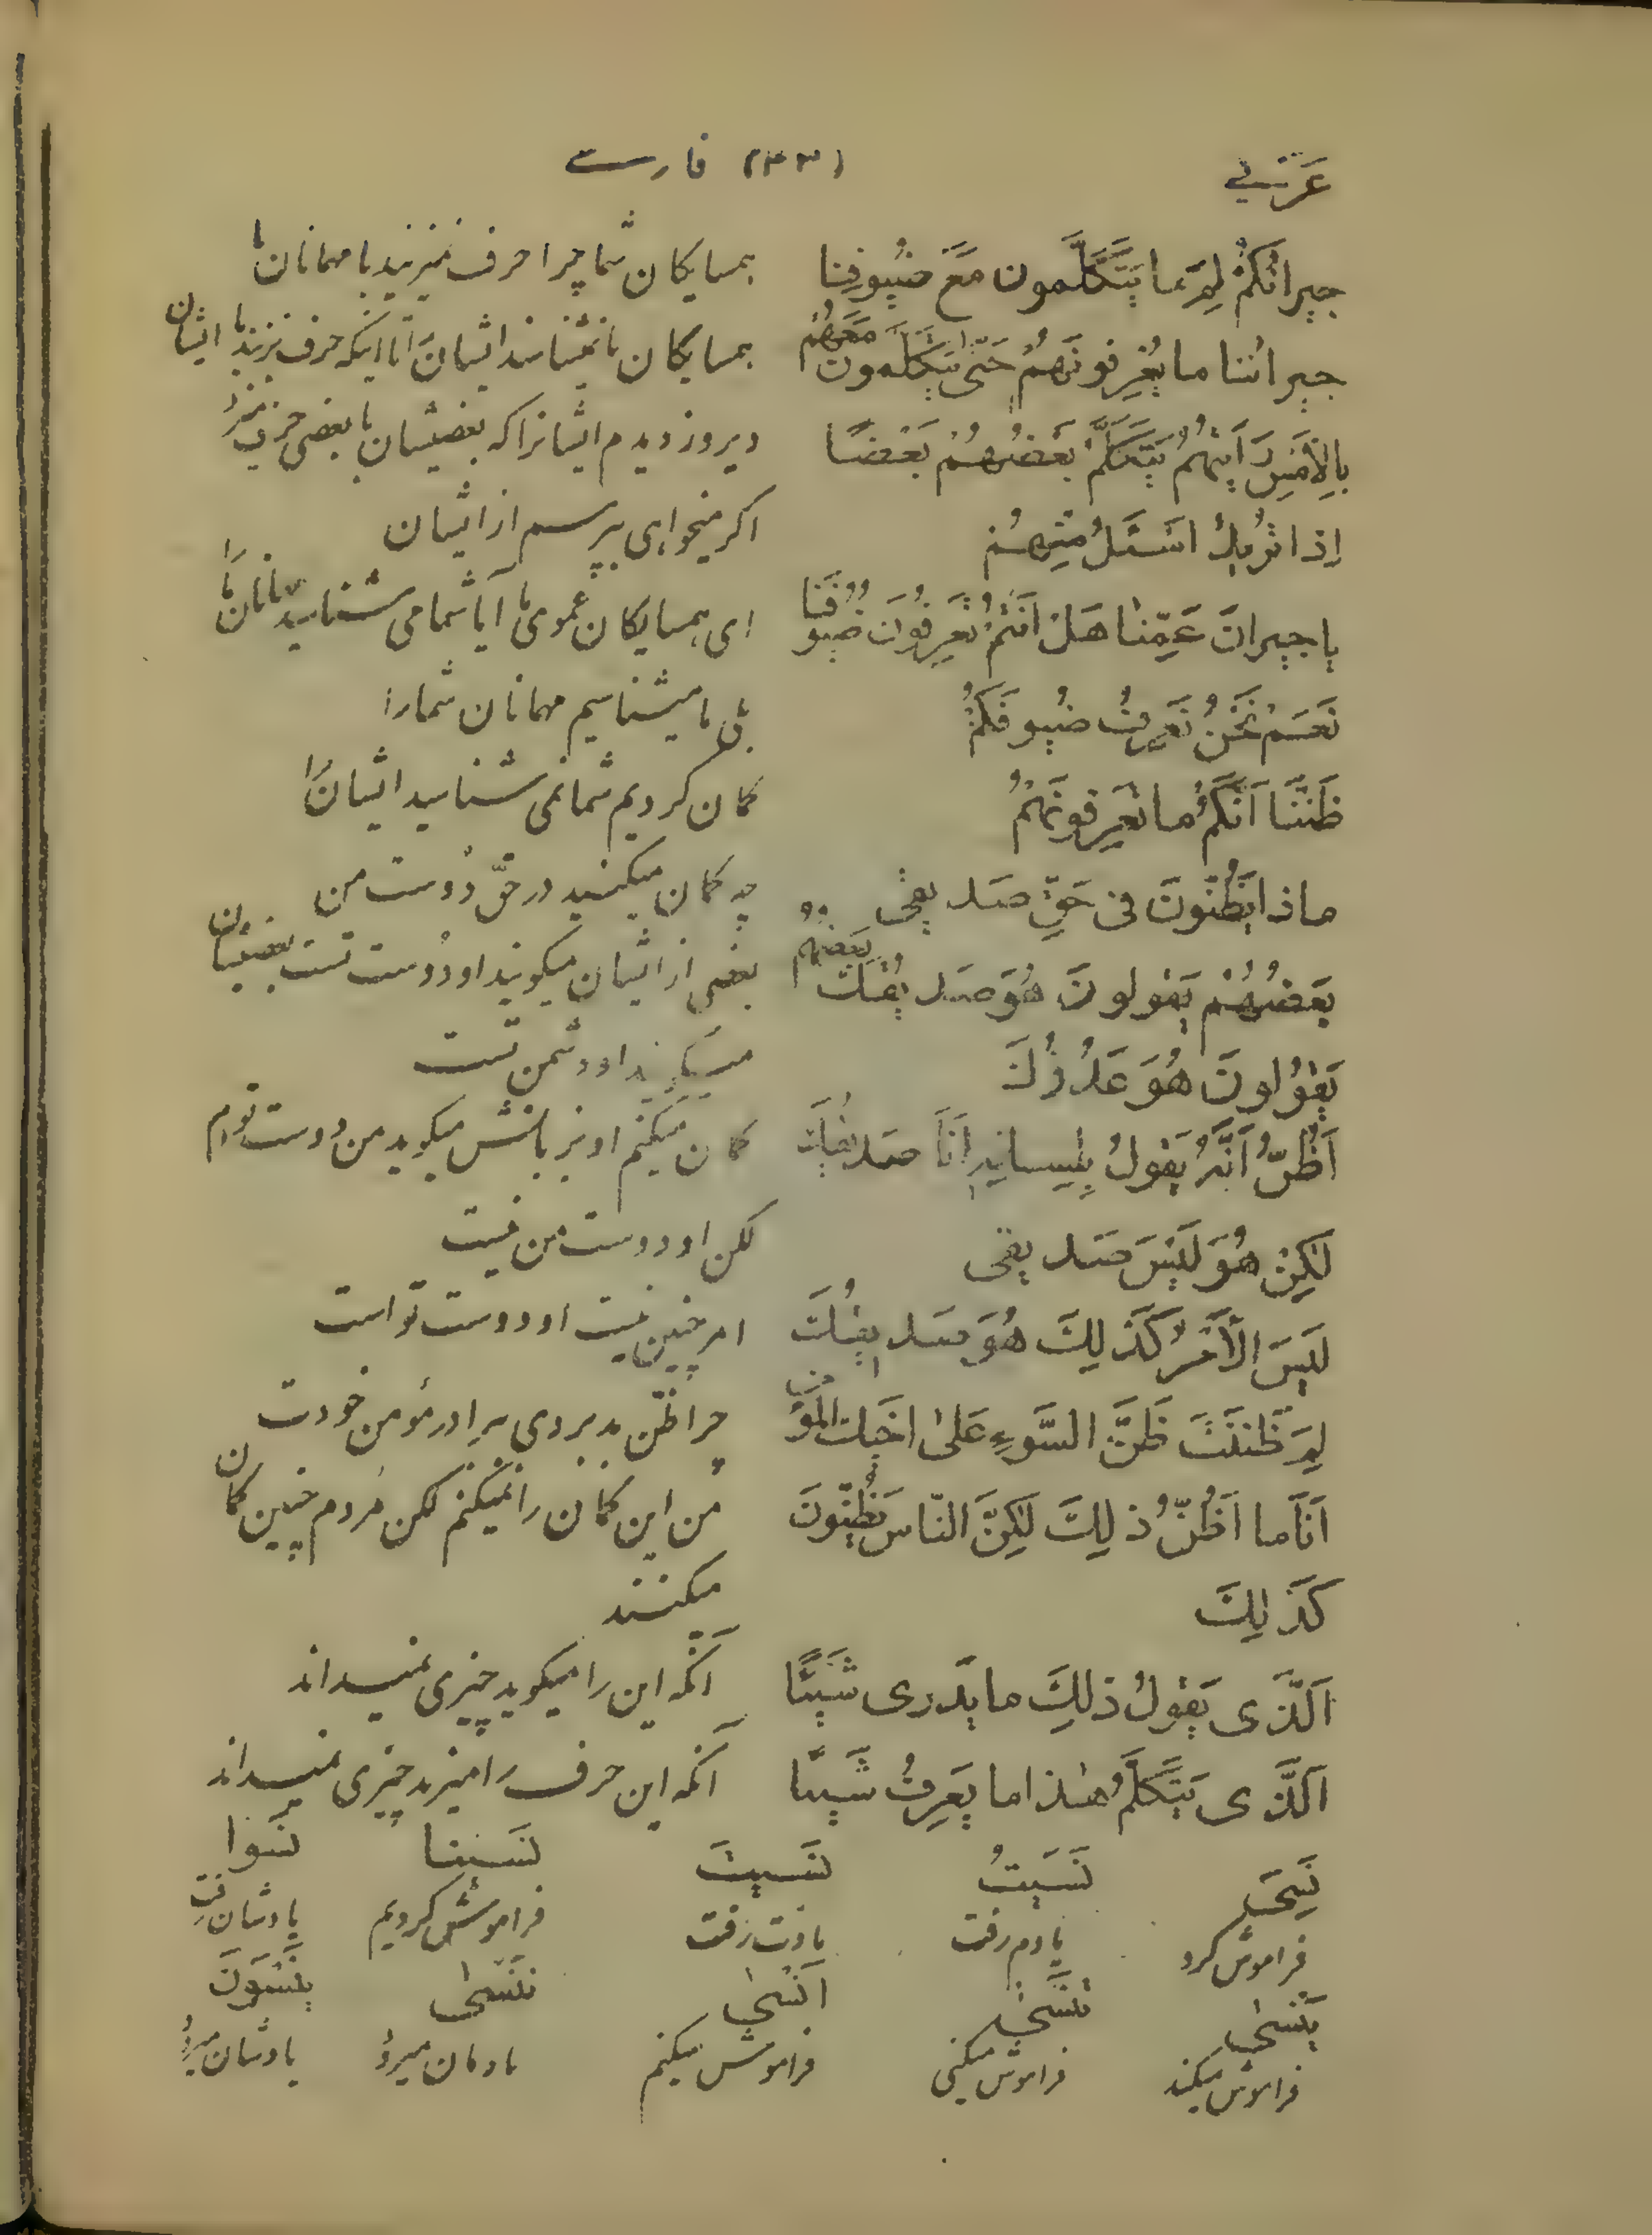 عَرَبِي (٣٣) فارسی
جیرانُکُمْ لِمَ ما یَتَکَلَّمون مَعَ ضُیوفِنا همسایکان شما چرا حرف نمیزنید با مهمانان ما
جیرانُنا ما یَعْرِفونَهُمْ حَتّی یَتَکَلَّمونَ مَعَهُمْ همسایکان ما نمیشناسند ایشان را تا اینکه حرف بزنند با ایشان
بِالاَمْسِ رَاَیْتُهُمْ یَتَکَلَّمُ بَعْضُهُمْ بَعْضًا دیروز دیدم ایشانرا که بعضیشان با بعضی حرف میزد
اِذا تُریدُ اَسْئَلُ مِنْهُمْ اکر میخواهی بپرسم از ایشان
یا جیرانَ عَمِّنا هَلْ اَنْتُمْ تَعْرِفُونَ ضُیُوفَنا ای همسایکان عموی ما آیا شما می شناسید مهمانان ما را
نَعَمْ نَحْنُ نَعْرِفُ ضُیوفَکُمْ بلی ما میشناسیم مهمانان شما را
ظَنَنَّا اَنَّکُمْ ما تَعْرِفونَهُمْ کمان کردیم شما نمی شناسید ایشان را
ماذا یَظُنّونَ فی حَقِّ صَدیقی چه کمان میکنید در حقّ دوست من
بَعْضُهُمْ یَقولونَ هُوَ صَدیقُکَ بَعْضُهُمْ بعضی از ایشان میکویند او دوست تست بعضیشان
یَقُولونَ هُوَ عَدُوُّکَ میکویند او دشمن تست
اَظُنُّ اَنَّهُ یَقولُ بِلِسانِهِ اَنَا صَدیقُکَ کمان میکنم او بزبانش میکوید من دوست توام
لٰکِنْ هُوَ لَیْسَ صَدیقی لکن او دوست من نیست
لَیْسَ الاَمْرُ کَذلِکَ هُوَ صَدیقُکَ امر چنین نیست او دوست تو است
لِمَ ظَنَنْتَ ظَنَّ السَّوءِ عَلیٰ اَخیکَ المُؤمِن چرا ظنّ بد بردی ببرادر مؤمن خودت
اَنَا ما اَظُنُّ ذلِکَ لٰکِنَّ النّاسَ یَظُنّونَ من این کمان را نمیکنم لکن مردم چنین کمان
کَذلِکَ میکنند
اَلَّذی یَقولُ ذلِکَ ما یَدْری شَیْئًا آنکه این را میکوید چیزی نمیداند
اَلَّذی یَتَکَلَّمُ هٰذا ما یَعْرِفُ شَیْئًا آنکه این حرف را میزند چیزی نمیداند
نَسِیَ نَسیتُ نَسیتَ نَسینا نَسوا
فراموش کرد یادم رفت یادت رفت فراموش کردیم یادشان رفت
یَنْسیٰ تَنْسیٰ اَنْسیٰ نَنْسیٰ یَنْسَوْنَ
فراموش میکند فراموش میکنی فراموش میکنم یادمان میرود یادشان میرود